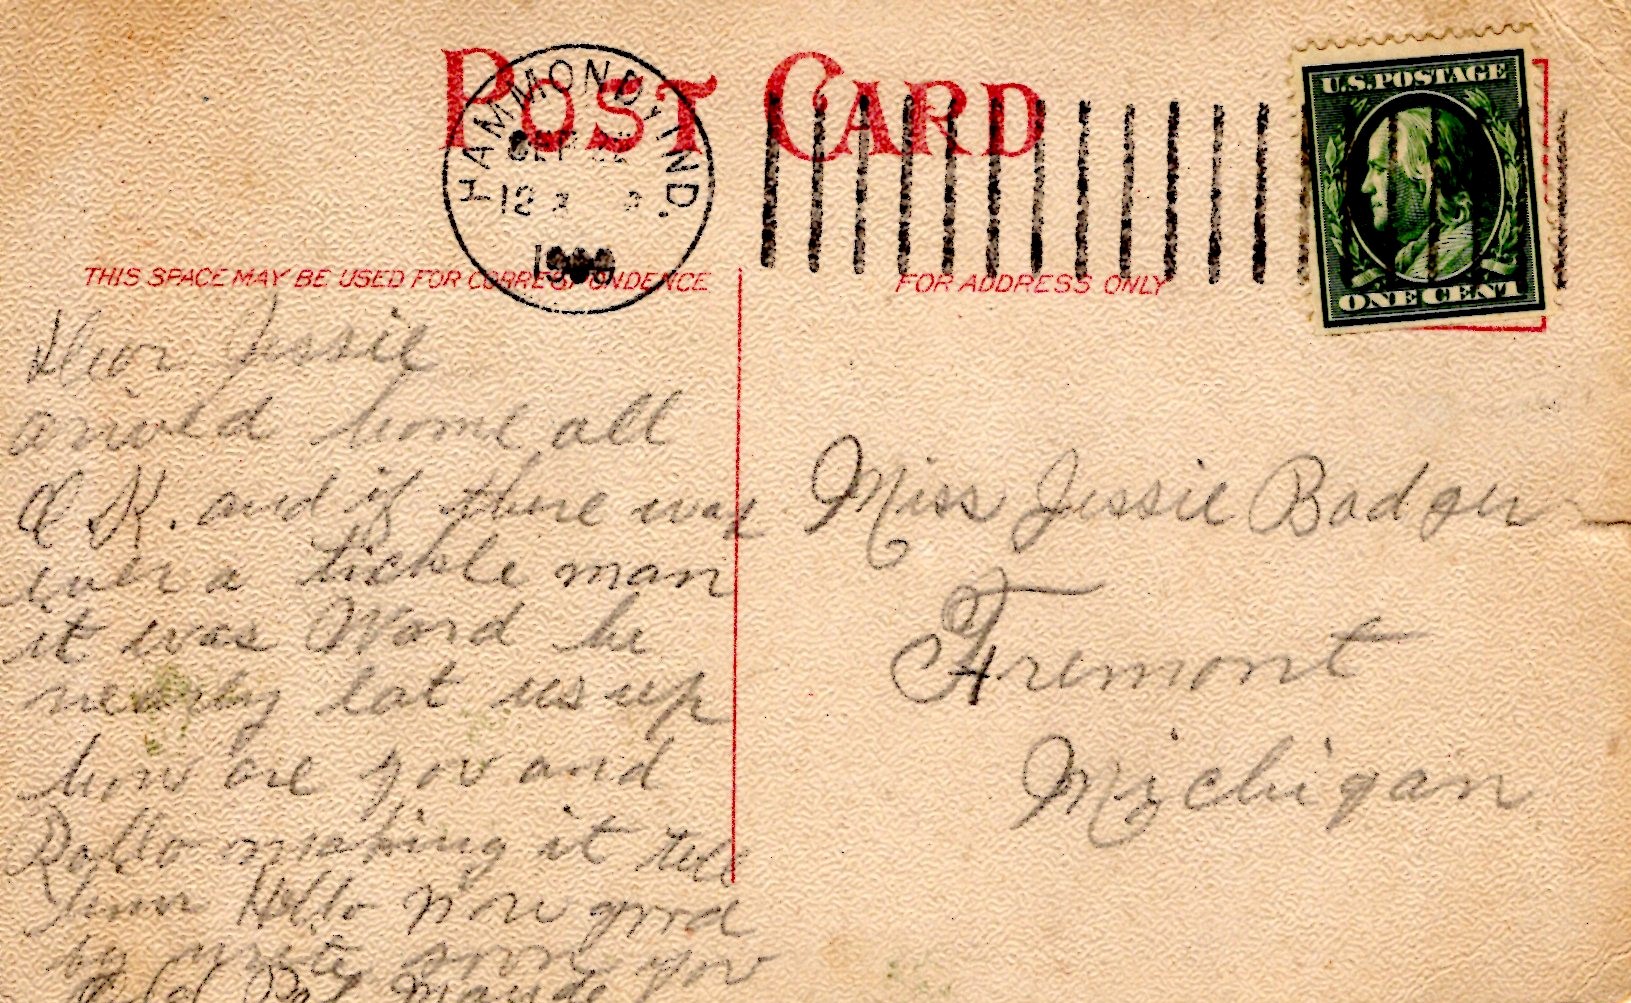 POST CARD
HAMMOND, IND.
SEP
12
U.S. POSTAGE
ONE CENT
THIS SPACE MAY BE USED FOR CORRESPONDENCE
FOR ADDRESS ONLY
Dear Jessie
arrived home all
O.K. and if there was
ever a tickle man
it was Ward he
nearly eat us up
how are you and
Rollo making it tell
him Hello Now good
by write soon your
Old Pal Maude
Miss Jessie Badger
Fremont
Michigan